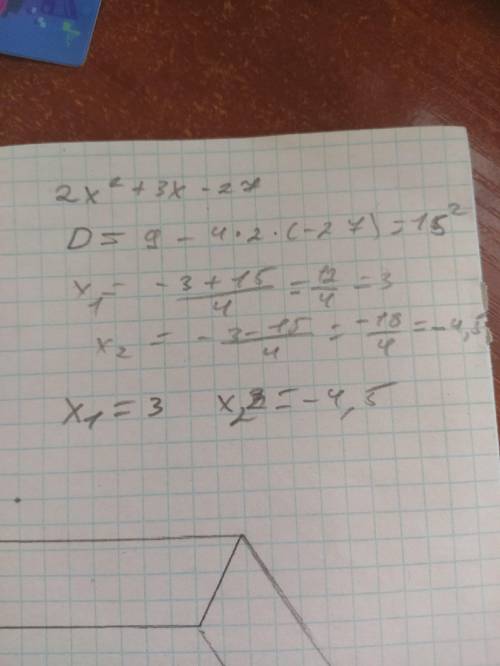 2x² + 3x - 27
D = 9 - 4 · 2 · (-27) = 15²
x₁ = -\frac{3 + 15}{4} = \frac{12}{4} = 3
x₂ = -\frac{3 - 15}{4} = \frac{-18}{4} = -4,5
x₁ = 3  x₂ = -4,5